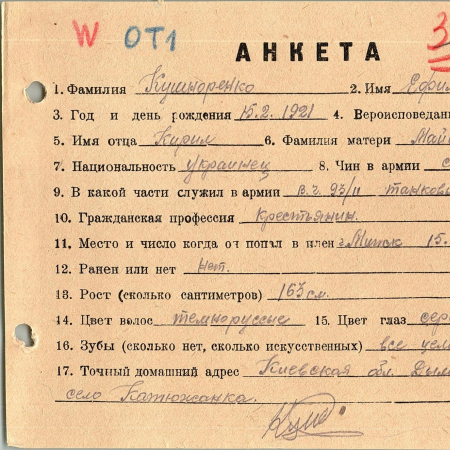 W ОТ1 3
АНКЕТА
1. Фамилия Кушноренко 2. Имя Ефим
3. Год и день рождения 15.2.1921 4. Вероисповедан
5. Имя отца Кирим 6. Фамилия матери Май
7. Национальность украинец 8. Чин в армии
9. В какой части служил в армии в.ч. 93/11 танков
10. Гражданская профессия Крестьянин.
11. Место и число когда он попал в плен Минск 15.
12. Ранен или нет Нет.
13. Рост (сколько сантиметров) 163 см.
14. Цвет волос темнорусые 15. Цвет глаз сер
16. Зубы (сколько нет, сколько искусственных) все цел
17. Точный домашний адрес Киевская обл. Дым
село Катюжанка.